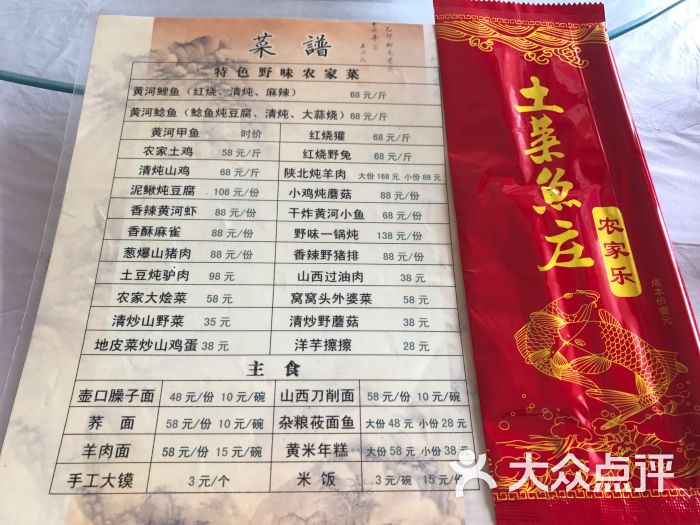 菜譜
特色野味农家菜
黄河鲤鱼（红烧、清炖、麻辣） 68 元/斤
黄河鲶鱼（鲶鱼炖豆腐、清炖、大蒜烧） 68 元/斤
黄河甲鱼 时价 红烧獾 68 元/斤
农家土鸡 58 元/斤 红烧野兔 68 元/斤
清炖山鸡 68 元/斤 陕北炖羊肉 大份 168 元 小份 88 元
泥鳅炖豆腐 108 元/份 小鸡炖蘑菇 88 元/份
香辣黄河虾 88 元/份 干炸黄河小鱼 68 元/份
香酥麻雀 88 元/份 野味一锅炖 138 元/份
葱爆山猪肉 88 元/份 香辣野猪排 88 元/份
土豆炖驴肉 98 元 山西过油肉 38 元
农家大烩菜 58 元 窝窝头外婆菜 58 元
清炒山野菜 35 元 清炒野蘑菇 38 元
地皮菜炒山鸡蛋 38 元 洋芋擦擦 28 元
主食
壶口臊子面 48 元/份 10 元/碗 山西刀削面 58 元/份 10 元/碗
荞面 58 元/份 10 元/碗 杂粮莜面鱼 大份 48 元 小份 28 元
羊肉面 58 元/份 15 元/碗 黄米年糕 大份 58 元 小份 38 元
手工大馍 3 元/个 米饭 3 元/碗 15 元/份
土菜鱼庄
农家乐
成本价壹元
大众点评